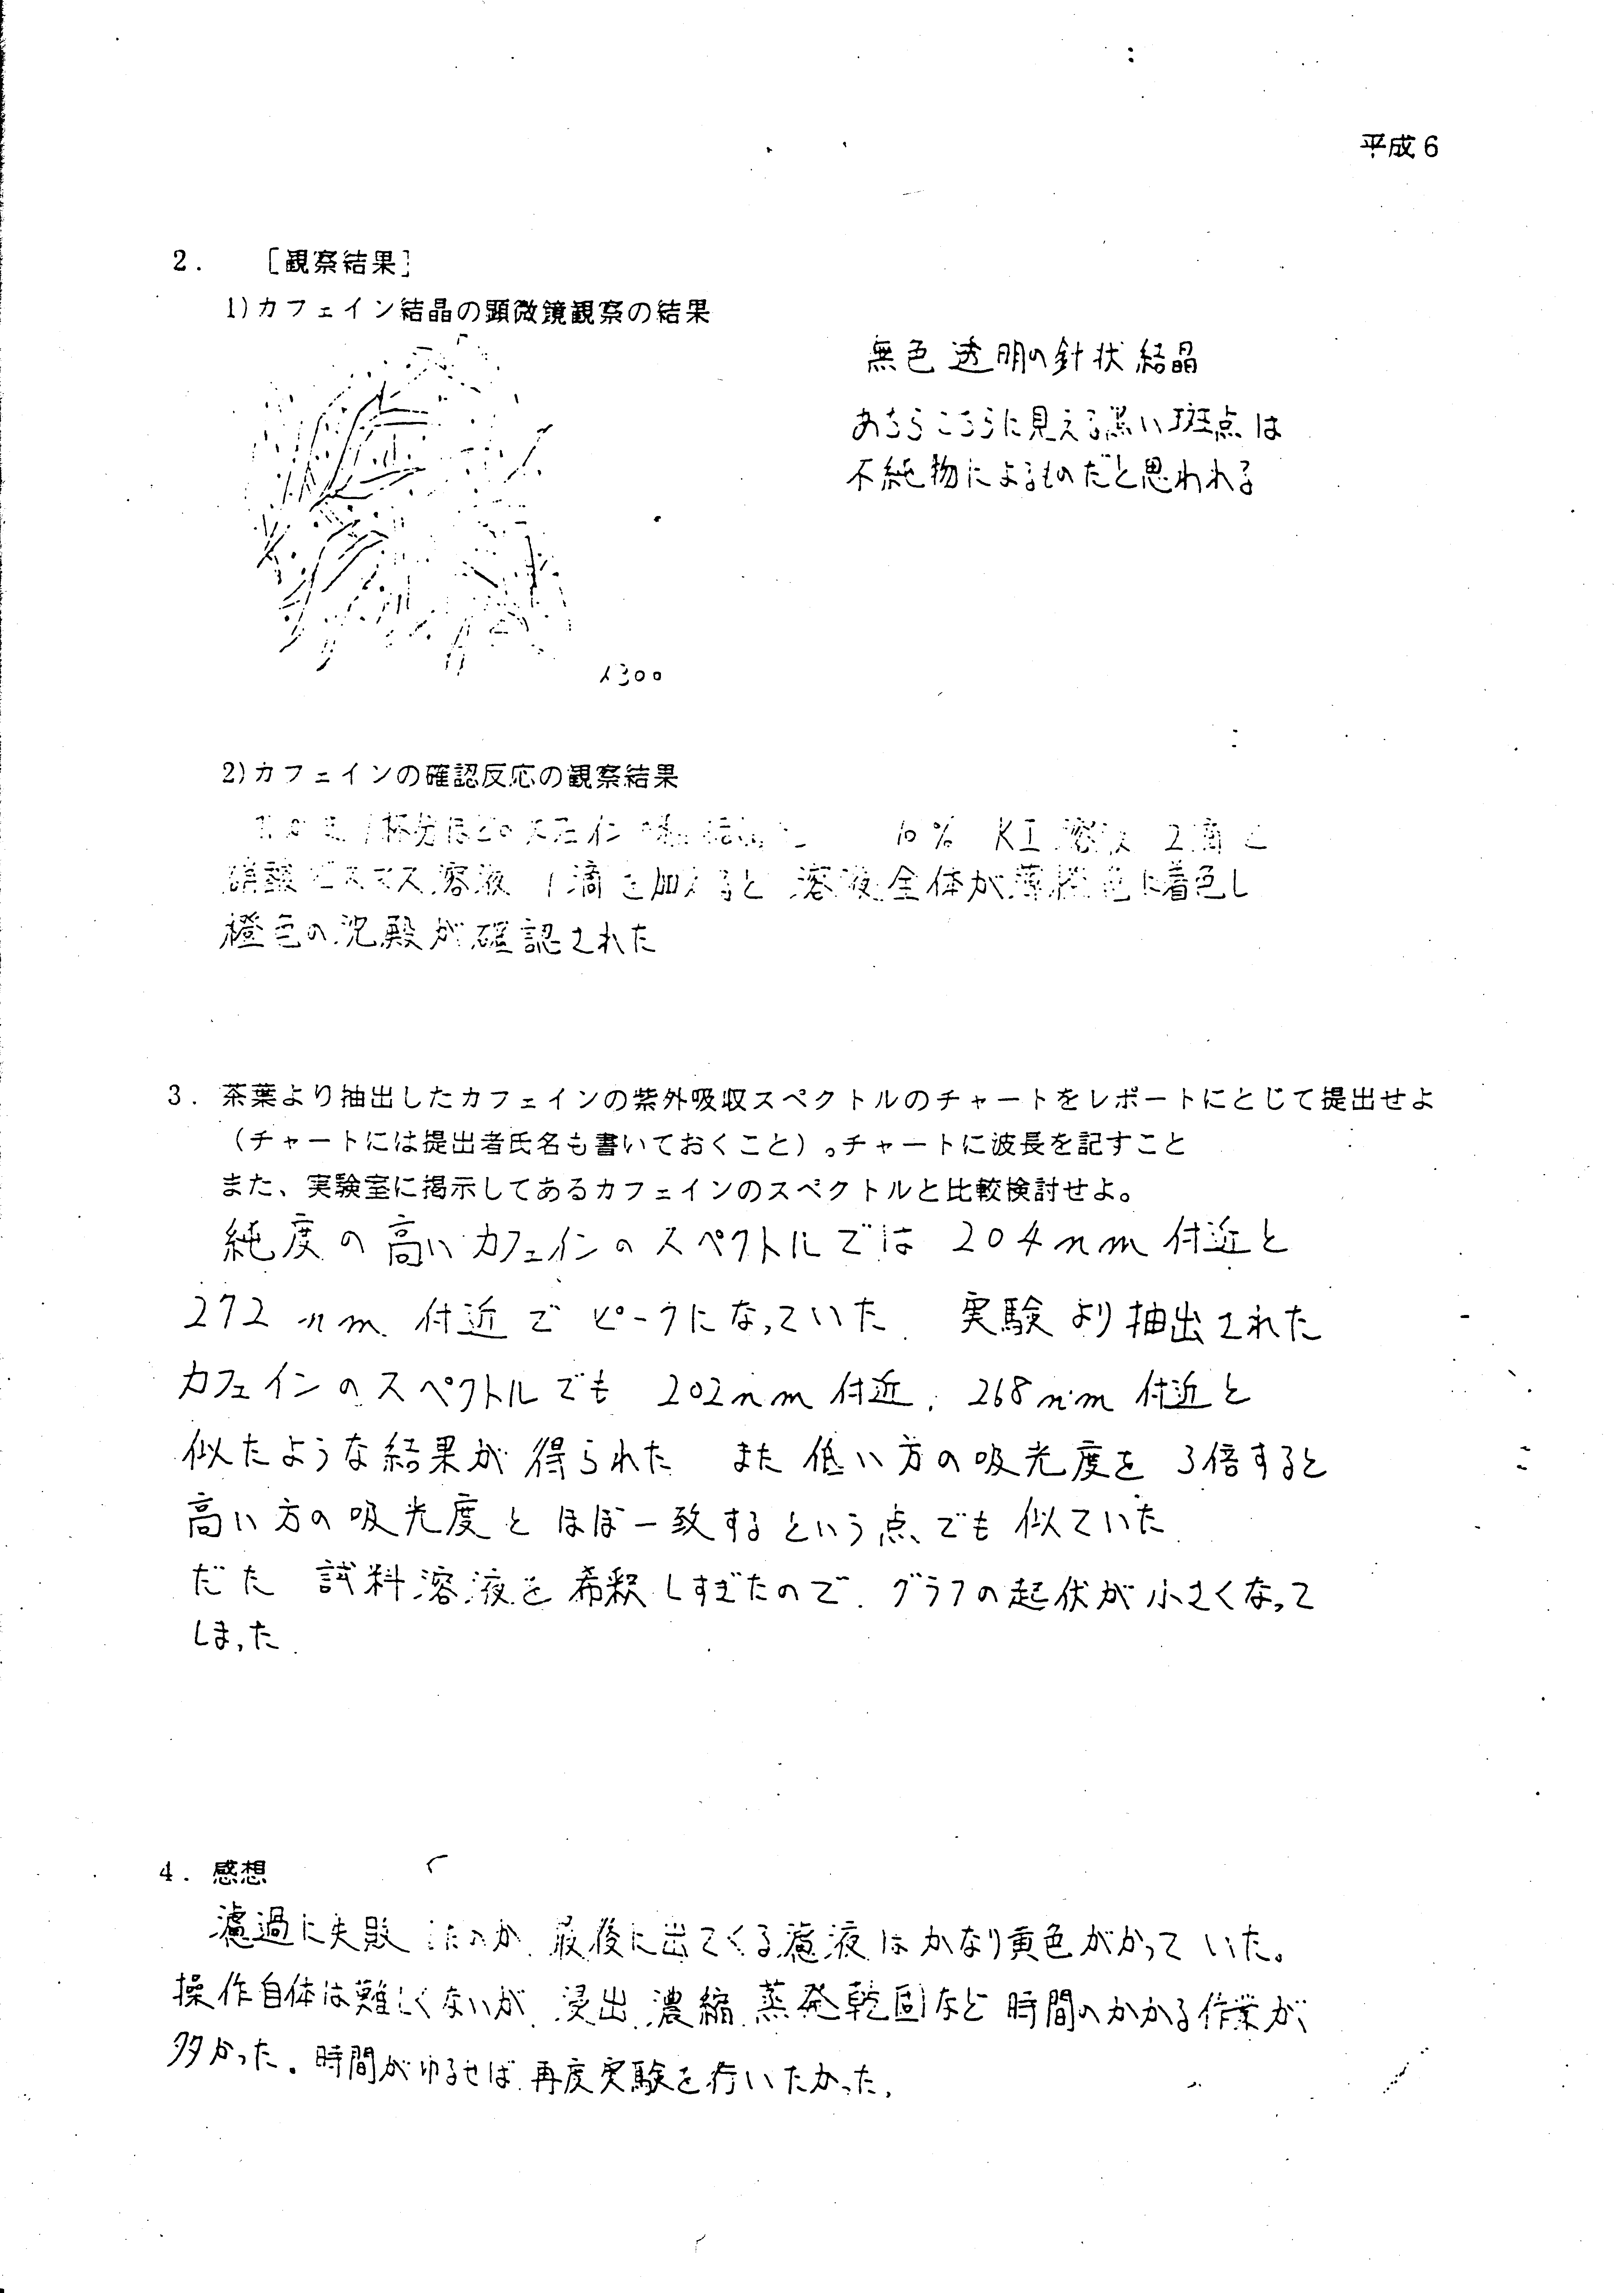 平成6
2. [観察結果]
1)カフェイン結晶の顕微鏡観察の結果
無色透明の針状結晶
あちらこちらに見える黒い斑点は
不純物によるものだと思われる
×300
2)カフェインの確認反応の観察結果
1杯分ほどの 10% KI溶液 2滴と
硝酸ビスマス溶液 1滴を加えると 溶液全体が薄橙色に着色し
橙色の沈殿が確認された
3. 茶葉より抽出したカフェインの紫外吸収スペクトルのチャートをレポートにとじて提出せよ
(チャートには提出者氏名も書いておくこと)。チャートに波長を記すこと
また、実験室に掲示してあるカフェインのスペクトルと比較検討せよ。
純度の高いカフェインのスペクトルでは 204nm 付近と
272nm 付近でピークになっていた 実験より抽出された
カフェインのスペクトルでも 202nm 付近, 268nm 付近と
似たような結果が得られた また低い方の吸光度を3倍すると
高い方の吸光度とほぼ一致するという点でも似ていた
だた 試料溶液を希釈しすぎたので、グラフの起伏が小さくなって
しまった.
4. 感想
濾過に失敗したのか、最後に出てくる濾液はかなり黄色がかっていた。
操作自体は難しくないが、浸出、濃縮、蒸発乾固など時間のかかる作業が
多かった。時間がゆるせば、再度実験を行いたかった.